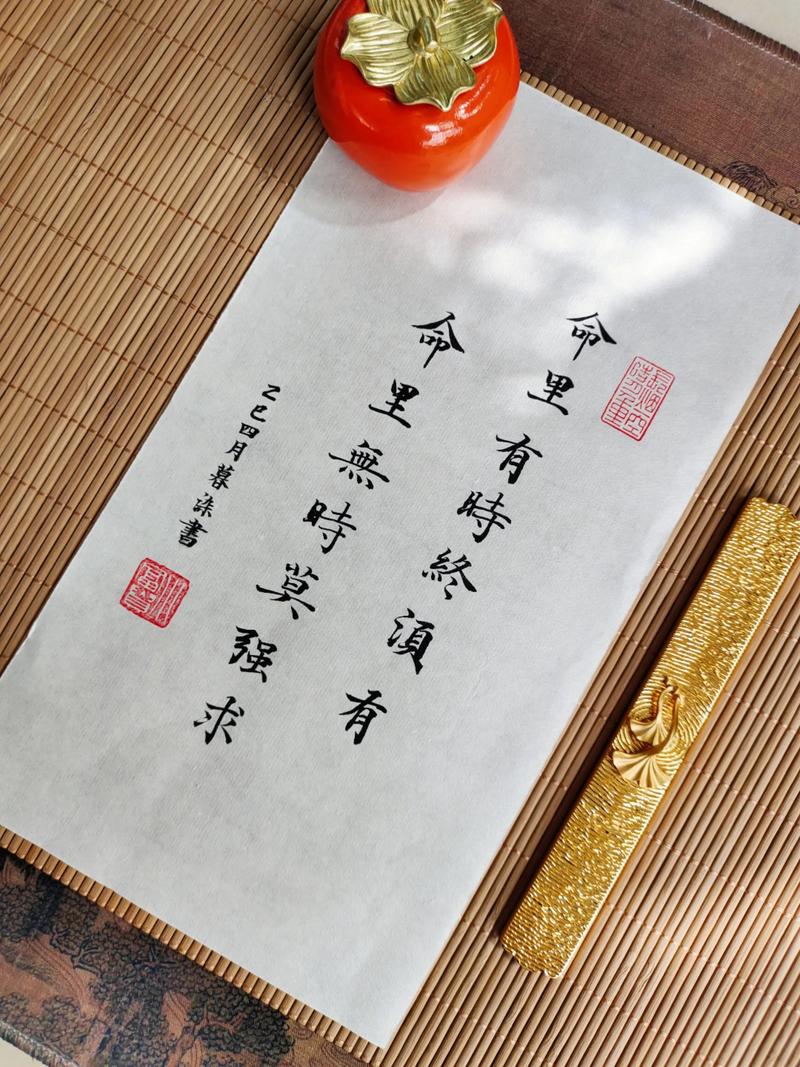 命里有時終須有
命里無時莫强求
乙巳四月暮染書